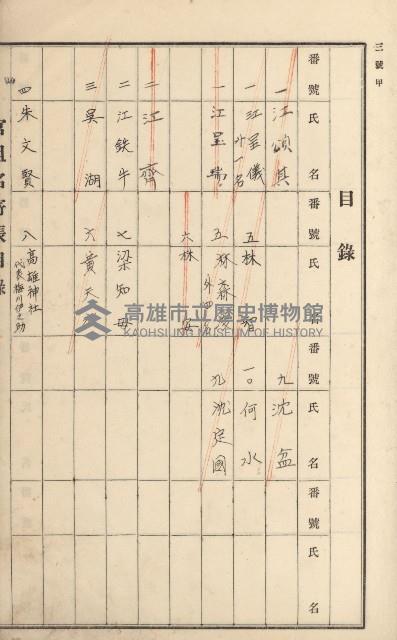 三號甲
目錄
番號 氏名 番號 氏名 番號 氏名 番號 氏名
一 江頌其
九 沈盆
一 江呈儀 外一名
五 林
一〇 何水
一 江呈瑞
五 林 外四名
九 沈定國
二 江齊
六 林
二 江鉄牛
七 梁知母
三 吳湖
六 黄天
四 朱文賢
八 高雄神社 代表 梅川伊之助
高雄市立歷史博物館
KAOHSIUNG MUSEUM OF HISTORY
官租名寄帳目錄